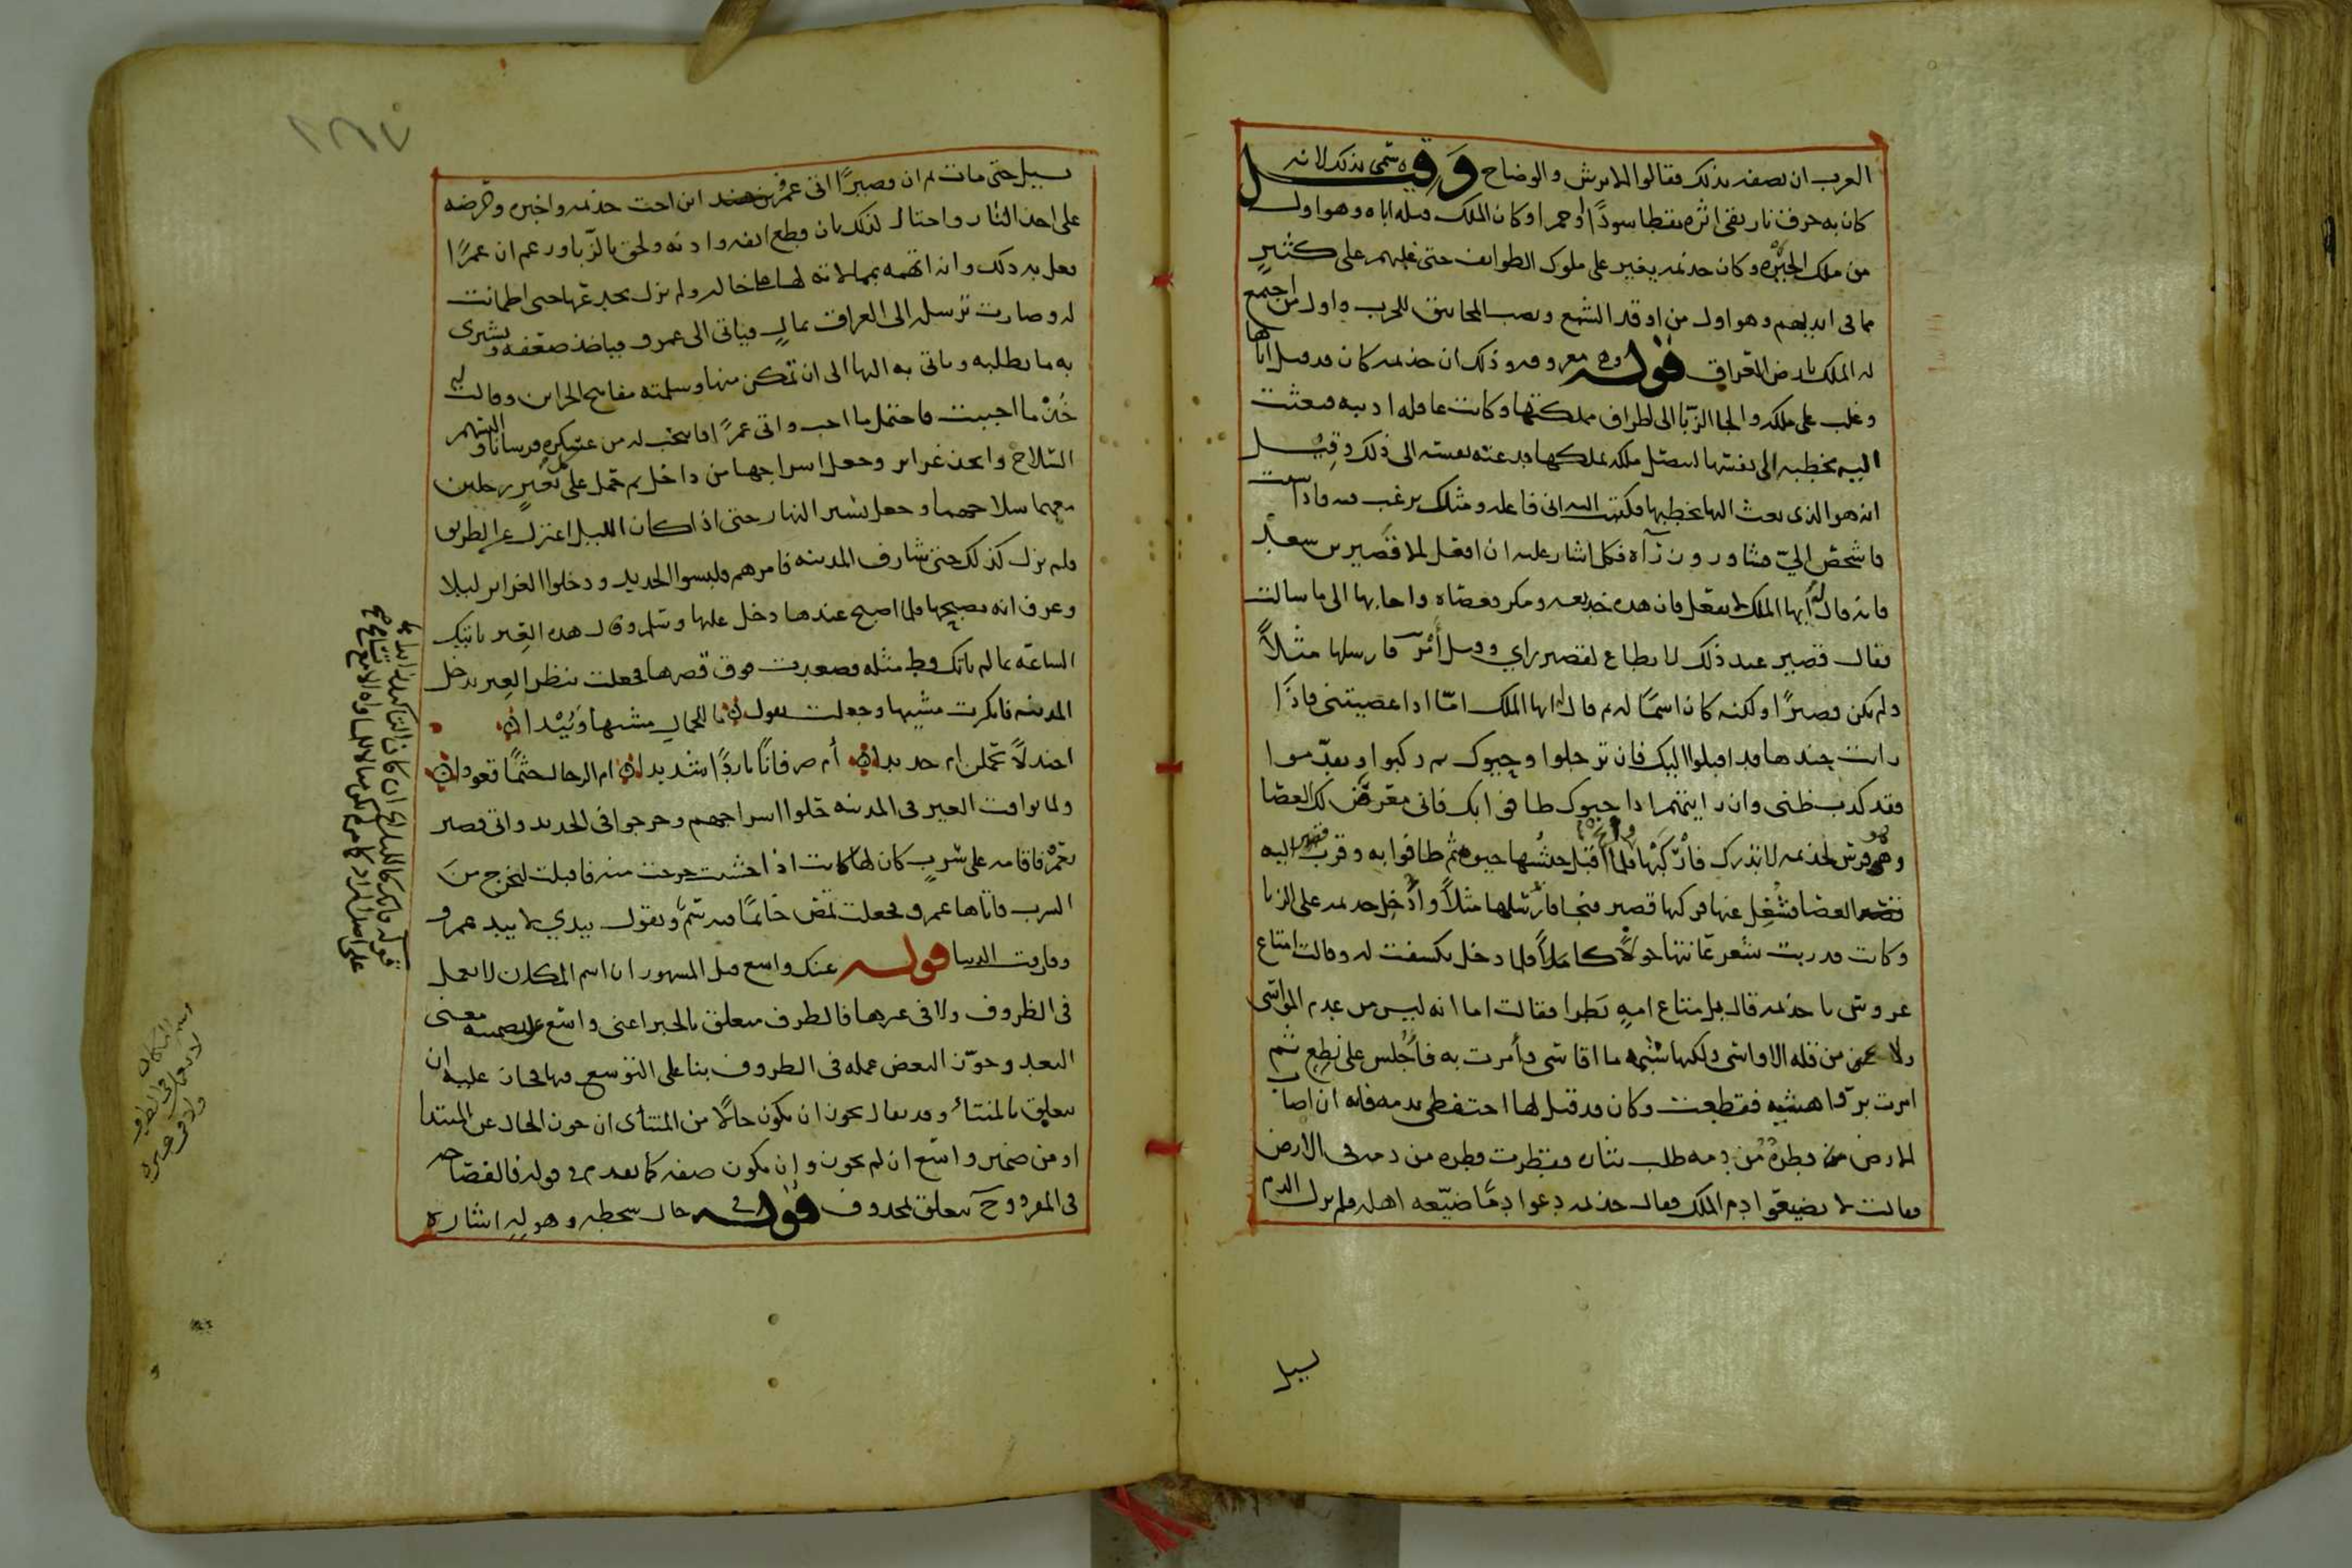 العرب ان تصفه بذلك فقالوا الابرش والوضاح وقيل سمى بذلك لانه
كان به حرق نار بقى اثره نقطا سودًا او حمرا وكان الملك قبله اباه وهو اول
من ملك الحيرة وكان جذيمه يغير على ملوك الطوايف حتى غلبهم على كثيرٍ
مما فى ايديهم وهو اول من اوقد الشمع ونصب المجانيق للحرب واول من اجتمع
له الملك بارض العراق قوله معروفه وذلك ان جذيمه كان قد قتل اباها
وغلب على ملكه والجا الزبّا الى اطراف مملكتها وكانت عاقله اديبه فبعثت
اليه يخطبه الى نفسها ليتصل ملكه بملكها فدعته نفسه الى ذلك وقيل
انه هو الذى بعث اليها يخطبها فكتبت اليه انى فاعله ومثلك يرغب فيه فاذا شئت
فاشخص اليّ فشاور وزرآه فكل اشار عليه ان افعل الا قصير بن سعد
فانه قال له أيها الملك لا تفعل فان هذه خديعه ومكر فعصاه واجابها الى ما سالت
فقال قصير عند ذلك لا يطاع لقصير راي وقيل أمر فارسلها مثلاً
ولم يكن قصيرًا ولكنه كان اسمًا له ثم قال له ايها الملك امّا اذا عصيتنى فاذا
رايت جندها قد اقبلوا اليك فان ترجلوا وحيوك ثم ركبوا وتقدموا
فقد كذب ظنى وان رايتهم اذا حيوك طافوا بك فانى معرض لك العصا
وهى فرس لجذيمه لا تدرك فأركبها فلما أقبل جيشها حيوه ثم طافوا به وقرب قصير اليه
العصا فشُغل عنها فركبها قصير فنجا فارسلها مثلاً وأُدخل جذيمه على الزبا
وكانت قد ربت شعر عانتها حولاً كاملاً فلما دخل تكشفت له وقالت امتاع
عروس يا جذيمه قال بل متاع امةٍ بظرا فقالت اما انه ليس من عدم المواسى
ولا من قلة الاواسى ولكنها شيمة ما اقاسى وأمرت به فأُجلس على نطع ثم
امرت برواهشه فقطعت وكان قد قيل لها احتفظى بدمه فانه ان اصاب
الارض قطرةٌ من دمه طلب بثاره فقطرت قطره من دمه فى الارض
فقالت لا تضيعوا دم الملك فقال جذيمه دعوا دمًا ضيّعه اهله فلم يزل الدم
يسيل
يسيل حتى مات ثم ان قصيرًا اتى عمرو بن هند ابن اخت جذيمه واخبره وحرضه
على اخذ الثار واحتال لذلك بان قطع انفه واذنه ولحق بالزّبا وزعم ان عمرًا
فعل به ذلك وانه اتهمه بممالاته لها على خاله ولم يزل يخدعها حتى اطمانت
له وصارت ترسله الى العراق بمالٍ فياتى الى عمرو فياخذ ضعفه ويشترى
به ما تطلبه وياتى به اليها الى ان تمكن منها وسلمته مفاتيح الخزاين وقالت له
خُذْ ما احببت فاحتمل ما احب واتى عمرًا فانتخب له من عسكره فرسانا والبسهم
السلاح واتخذ غراير وجعل اسراجها من داخل ثم حمل على كل بعيرٍ رجلين
معهما سلاحهما وجعل يسير النهار حتى اذا كان الليل اعتزل عن الطريق
ولم يزل كذلك حتى شارف المدينه فامرهم فلبسوا الحديد ودخلوا الغراير ليلا
وعرف انه مصبحها فلما اصبح عندها دخل عليها وسلم وقال هذه العير تاتيك
الساعه بما لم ياتك قط مثله فصعدت فوق قصرها فجعلت تنظر العير تدخل
المدينه فانكرت مشيها وجعلت تقول ما للجمال مشيها وئيدا
اجندلاً تحملن ام حديدا أم صرفانًا باردًا شديدا ام الرجال جثمًا قعودا
ولما توافت العير فى المدينه حلوا اسراجهم وخرجوا فى الحديد واتى قصير
بعمرو فاقامه على سَرَبٍ كان لها كانت اذا خشيت خرجت منه فاقبلت لتخرج من
السرب فاتاها عمرو فجعلت تمص خاتمًا فيه سمٌّ وتقول بيدي لا بيد عمرو
وفارقت الدنيا قوله عنك واسع قيل المشهور ان اسم المكان لا يعمل
فى الظروف ولا فى غيرها فالظرف متعلق بالخبر اعنى واسع على تضمينه معنى
البعد وجوّز البعض عمله فى الظروف بنا على التوسع فيها فجاز عليه ان
يتعلق بالمنتائ وقد يقال يجوز ان يكون حالاً من المنتأى ان جوز الحال عن المبتدا
او من ضمير واسع ان لم يجوز وان يكون صفه كما تقدم فى قوله فالفصاحه
فى المفرد وح يتعلق بمحذوف قوله حال سخطه وهوله اشاره
اسم المكان
لا يعمل فى الظروف
ولا فى غيره